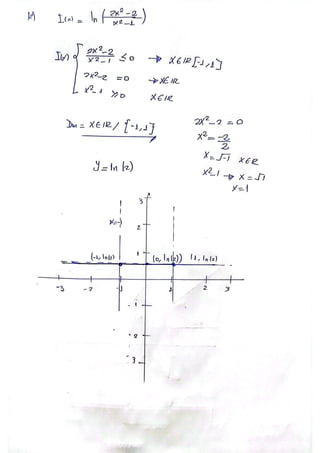 I(x) = ln (2x²-2 / x²-1)
I(x) { 2x²-2 / x²-1 ≤ 0 → x∈IR [-1,1]
2x²-2 = 0 → x∈IR
x²-1 ≥ 0 x∈IR
= x∈IR / {-1,1}
2x²-2 = 0
x² = -2/2
x = √-1 x∈R
x²-1 → x = √1
x=1
y = ln (2)
3
x=-1
2
(-1, ln(2)) 1 (0, ln(2)) (1, ln(2))
-3 -2 -1 1 2 3
-1
-2
-3